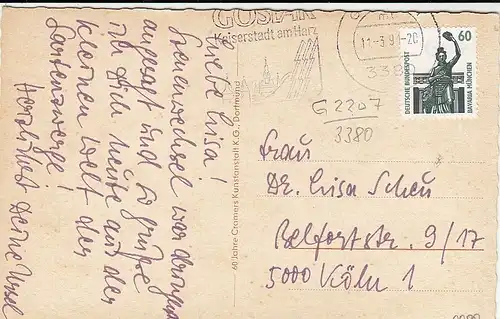 GOSLAR
Kaiserstadt am Harz
11-3.91-20
338
60
DEUTSCHE BUNDESPOST
BAVARIA MÜNCHEN
G 2207
3380
Liebe Lisa!
Szenenwechsel war dringend
angesagt und so grüße
ich Dich heute aus der
kleinen Welt der
Gartenzwerge!
Herzlichst Deine Ursel
60 Jahre Cramers Kunstanstalt K.G., Dortmund
Frau
Dr. Lisa Scheu
Belfortstr. 9/17
5000 Köln 1